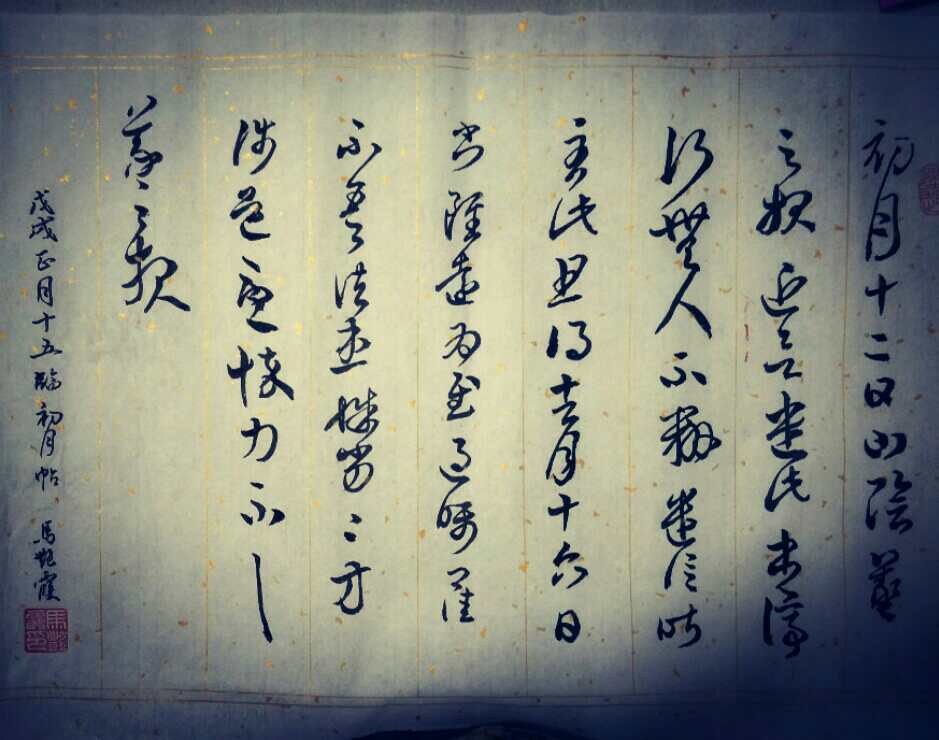 初月十二日山陰羲
之報近欲遣此書停
行無人不辦遣信昨
至此且得去月十六日
書雖遠為慰過囑卿佳
不吾諸患殊劣〻方
涉道憂悴力不一一
羲之報
戊戌正月十五臨初月帖 馬艷霞